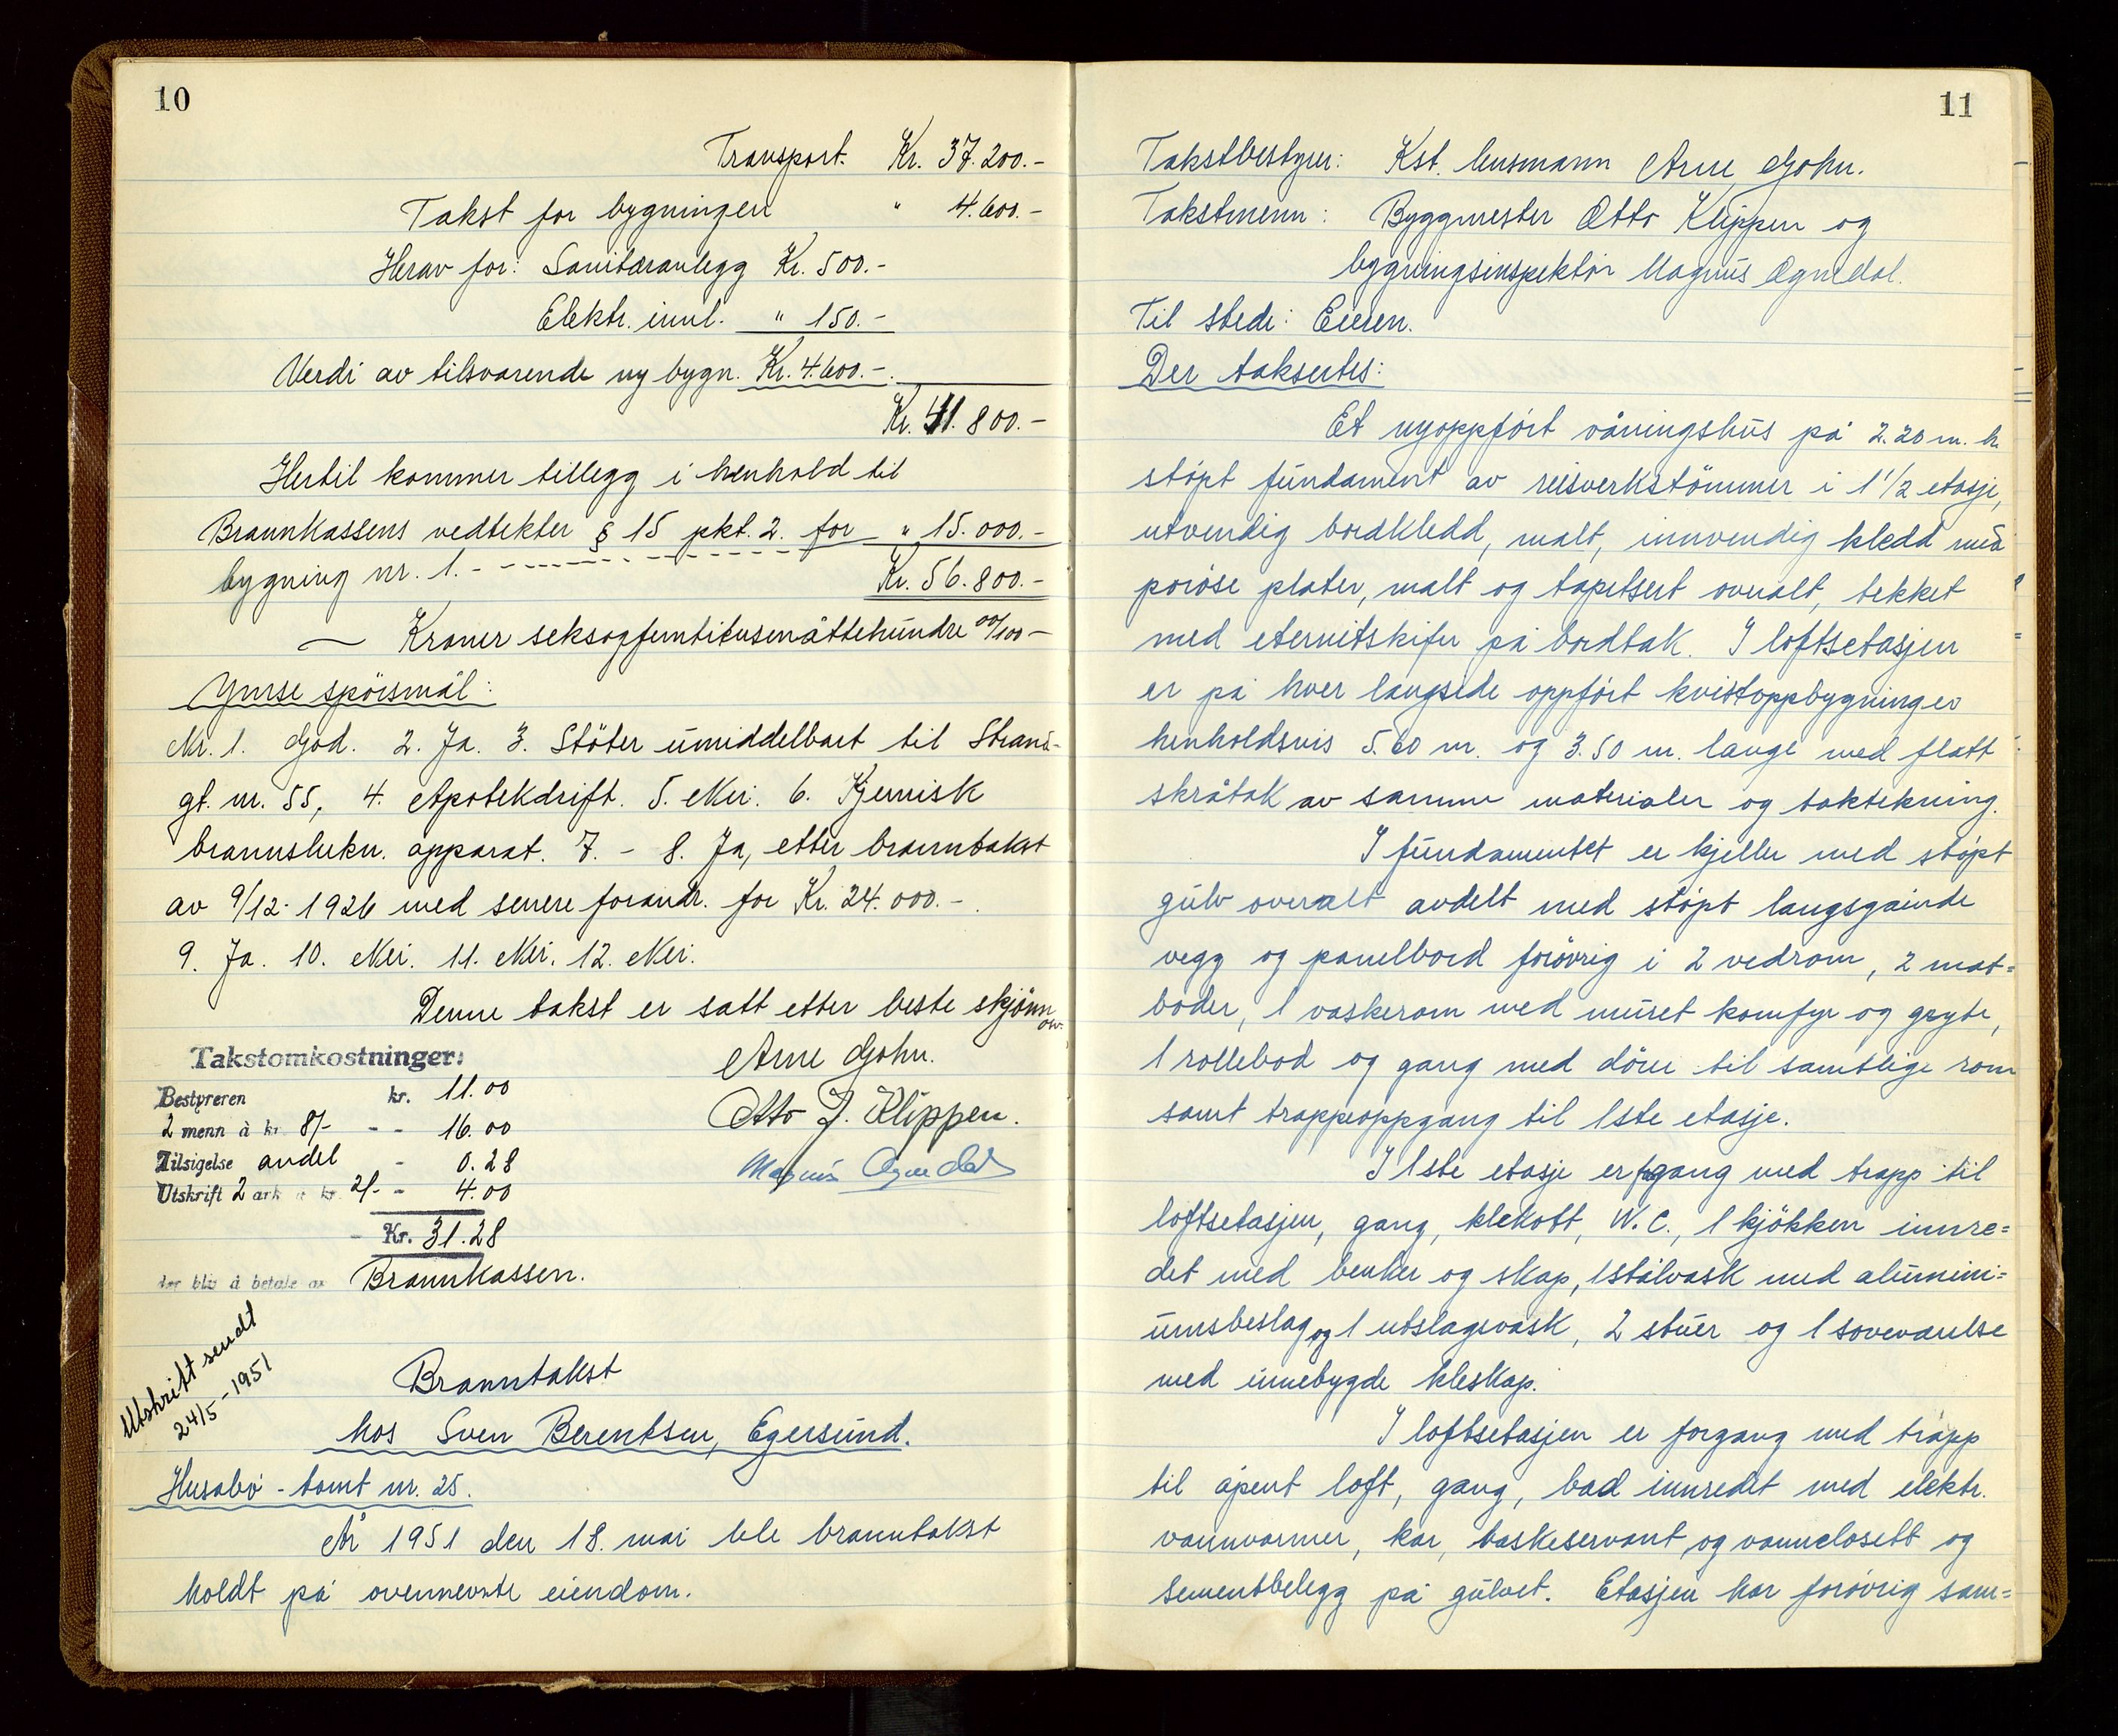 10
Transport. Kr. 37.200.-
Takst for bygningen " 4.600.-
Herav for: Sanitæranlegg Kr. 500.-
Elektr. innl. " 150.-
Verdi av tilsvarende ny bygn. Kr. 4.600.-
Kr. 41.800.-
Hertil kommer tillegg i henhold til
Brannkassens vedtekter § 15 pkt. 2. for " 15.000.-
bygning nr. 1. - Kr. 56.800.-
Kroner seksogfemtitusenåttehundre 00/100 -
Ymse spörsmål:
Nr. 1. God. 2. Ja. 3. Stöter umiddelbart til Strand-
gt. nr. 55, 4. Apotekdrift. 5. Nei. 6. Kjemisk
brannslukn. apparat. 7. - 8. Ja, etter branntakst
av 9/12-1926 med senere forandr. for Kr. 24.000.-
9. Ja. 10. Nei. 11. Nei. 12. Nei.
Denne takst er satt etter beste skjönn
ow.
Takstomkostninger:
Arne Gohn.
Bestyreren kr. 11.00
Otto J. Klippen.
2 menn à kr. 8/- - - 16.00
Magnus Ognedal
Tilsigelse andel - 0.28
Utskrift 2 ark à kr. 2/- - 4.00
Kr. 31.28
der blir å betale av Brannkassen.
Utskrift sendt
24/5-1951
Branntakst
hos Sven Berentsen, Egersund.
Husabø - tomt nr. 25.
År 1951 den 18. mai ble branntakst
holdt på ovennevnte eiendom.
11
Takstbestyrer: Kst. lensmann Arne Gohn.
Takstmenn: Byggmester Otto Klippen og
bygningsinspektör Magnus Ognedal.
Til stede: Eieren.
Der taksertes:
Et nyoppfört våningshus på 2.20 m. h.
stöpt fundament av reisverkstömmer i 1 1/2 etasje,
utvendig bordkledd, malt, innvendig kledd med
poröse plater, malt og tapetsert overalt, tekket
med eternitskifer på bordtak. I loftsetasjen
er på hver langside oppfört kvistoppbygninger
henholdsvis 5.60 m. og 3.50 m. lange med flatt
skråtak av samme materialer og taktekning.
I fundamentet er kjeller med stöpt
gulv overalt avdelt med stöpt langsgående
vegg og panelbord forövrig i 2 vedrom, 2 mat=
boder, 1 vaskerom med muret komfyr og gryte,
1 rollebod og gang med dörer til samtlige rom
samt trappeoppgang til 1ste etasje.
I 1ste etasje er gang med trapp til
loftsetasjen, gang, klekott, W.C., 1 kjökken innre=
det med benker og skap, 1 stålvask med alumini=
umsbeslag og 1 utslagsvask, 2 stuer og 1 soveværelse
med innebygde kleskap.
I loftsetasjen er forgang med trapp
til åpent loft, gang, bad innredet med elektr.
vannvarmer, kar, vaskeservant og vannclosett og
sementbelegg på gulvet. Etasjen har forövrig sam=